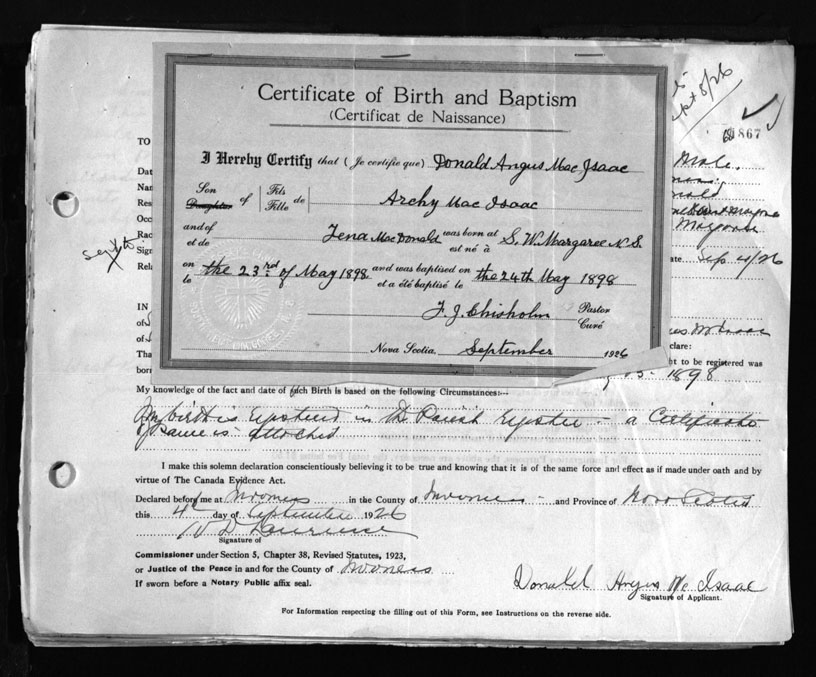 Certificate of Birth and Baptism
(Certificat de Naissance)
I Hereby Certify that (Je certifie que) Donald Angus Mac Isaac
Son Daughter of Fils Fille de Archy Mac Isaac
and of et de Jena MacDonald was born at est né à S. W. Margaree N. S.
on le the 23rd of May 1898 and was baptised on et a été baptisé le the 24th May 1898
F. J. Chisholm Pastor Curé
Nova Scotia September 1926
Sept 8/26
867
TO
Male
Dat
Nam
Res
Occ
Rac
Sig
Rela
ate Sep 4/26
IN
of
of
clare:
Tha
ht to be registered was
born
1898
My knowledge of the fact and date of such Birth is based on the following Circumstances:—
My birth is Registered in the Parish Register - a Certificate
of same is attached
I make this solemn declaration conscientiously believing it to be true and knowing that it is of the same force and effect as if made under oath and by
virtue of The Canada Evidence Act.
Declared before me at Inverness in the County of Inverness and Province of Nova Scotia
this 4th day of September 1926
Signature of
Commissioner under Section 5, Chapter 38, Revised Statutes, 1923,
or Justice of the Peace in and for the County of Inverness
If sworn before a Notary Public affix seal.
Donald Angus Mc Isaac
Signature of Applicant.
For Information respecting the filling out of this Form, see Instructions on the reverse side.